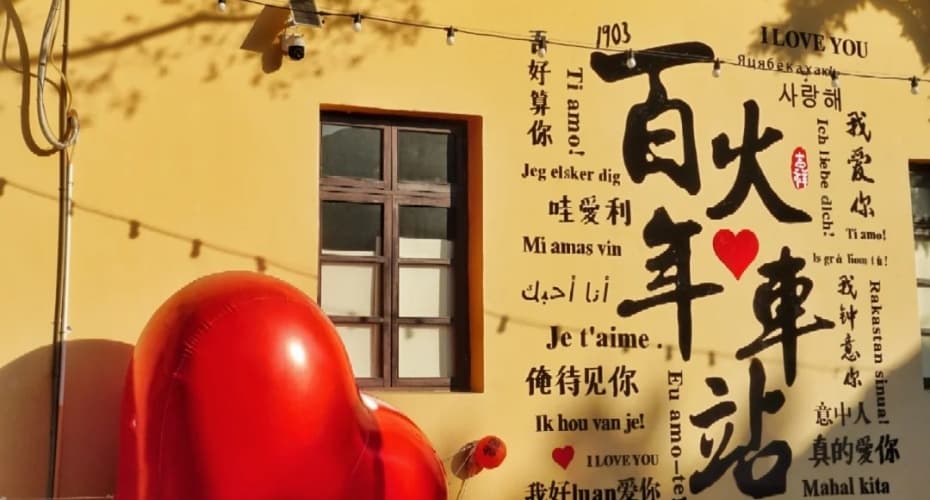 1903
百年
火車站
吉祥
吾好算你
Ti amo!
Jeg elsker dig
哇愛利
Mi amas vin
أنا أحبك
Je t'aime .
俺待见你
Ik hou van je!
I LOVE YOU
我好luan爱你
Eu amo-te!
I LOVE YOU
사랑해
Ich liebe dich!
我爱你
Ti amo!
Is grá liom tú!
我钟意你
Rakastan sinua!
意中人
真的爱你
Mahal kita